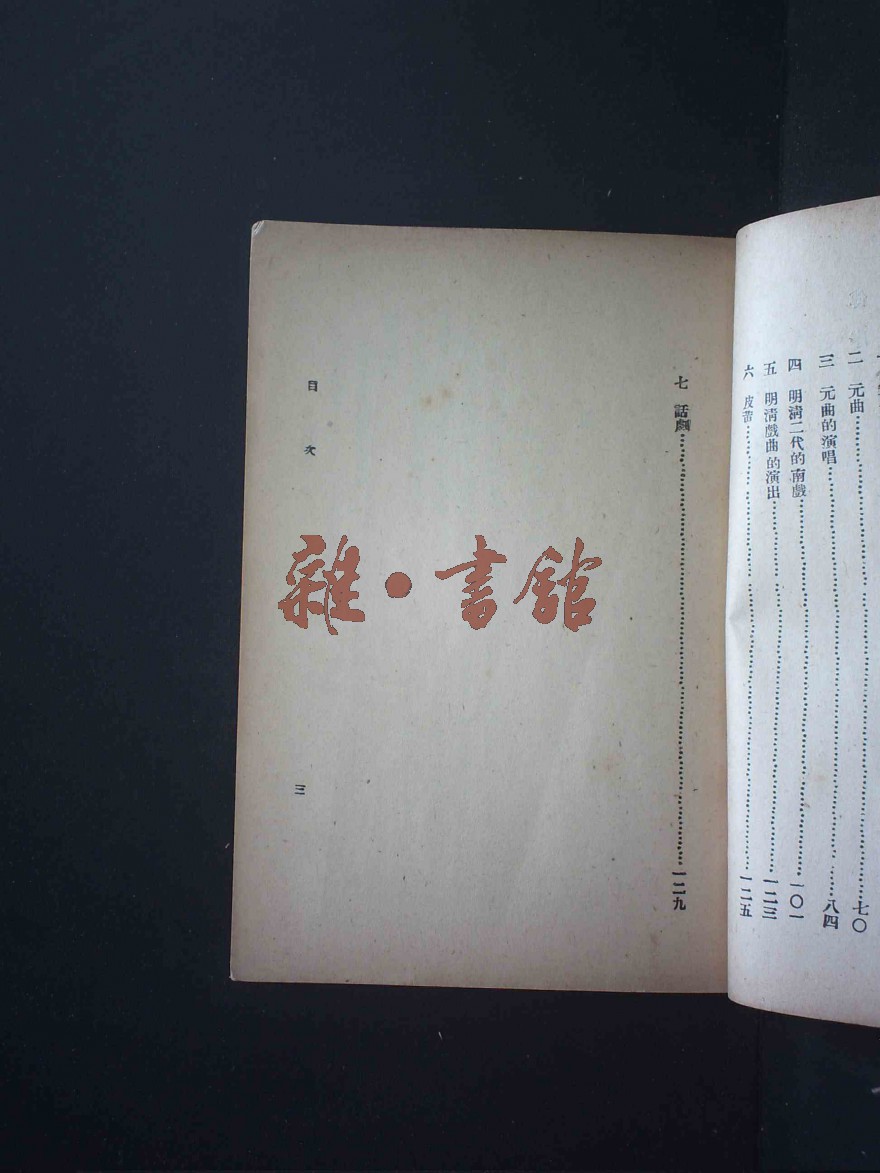 二　元曲……七〇
三　元曲的演唱……八四
四　明清二代的南戲……一〇一
五　明清戲曲的演出……一二三
六　皮黃……一二五
七　話劇……一二九
目次
三
雜•書館